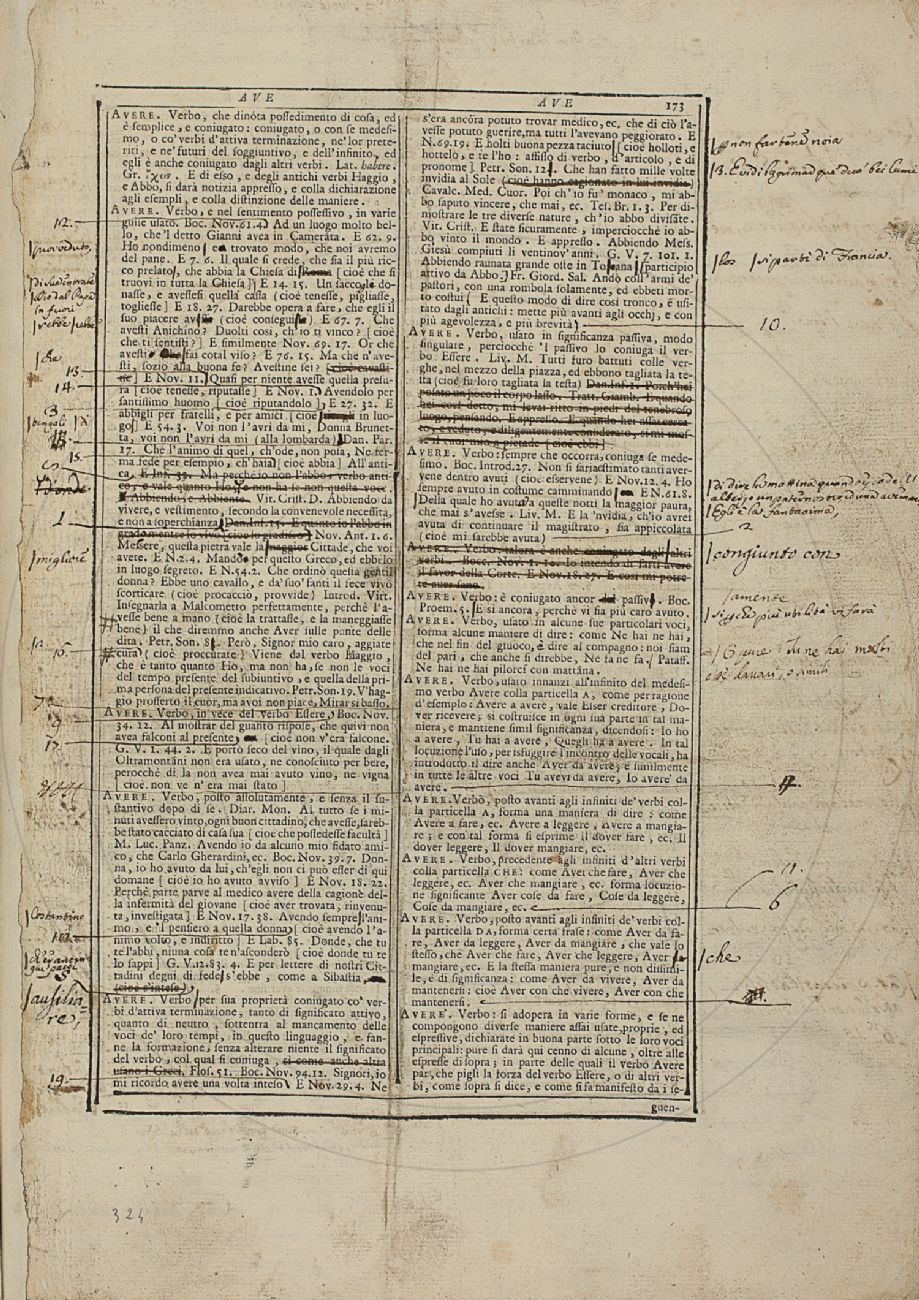 AVE
AVE 173
AVERE. Verbo, che dinóta possedimento di cosa, ed
è semplice, e coniugato: coniugato, o con se medesi-
mo, o co' verbi d'attiva terminazione, ne'lor prete-
riti, e ne'futuri del soggiuntivo, e dell'infinito, ed
egli è anche coniugato dagli altri verbi. Lat. habere.
Gr. ἔχειν. E di esso, e degli antichi verbi Haggio,
e Abbo, si darà notizia appresso, e colla dichiarazione
agli esempli, e colla distinzione delle maniere.
AVERE. Verbo, e nel sentimento possessivo, in varie
guise usato. Boc. Nov. 61. 4. Ad un luogo molto bel-
lo, che'l detto Gianni avea in Camerata. E 62. 9.
Ho nondimeno trovato modo, che noi avremo
del pane. E 7. 6. Il quale si crede, che sia il più ric-
co prelato, che abbia la Chiesa di Roma [cioè che si
truovi in tutta la Chiesa] E 14. 15. Un sacco le do-
nasse, e avessesi quella cassa (cioè tenesse, pigliasse,
togliesse] E 18. 27. Darebbe opera a fare, che egli il
suo piacere (cioè E 67. 7. Che
avesti Anichino? Duolti così, ch'io ti vinco? [cioè
che ti sentisti?] E similmente Nov. 69. 17. Or che
avesti fai cotal viso? E 76. 15. Ma che n'ave-
sti, sozio alla buona fe? Avestine sei? [cioè cavasti-
ne] E Nov. 11. Quasi per niente avesse quella presu-
ra [cioè tenesse, riputasse] E Nov. 1. Avendolo per
santissimo huomo [cioè riputandolo], E 27. 32. E
abbigli per fratelli, e per amici (cioè in luo-
go) E 54. 3. Voi non l'avri da mi, Donna Brunet-
ta, voi non l'avri da mi (alla lombarda) Dan. Par.
17. Che l'animo di quel, ch'ode, non posa, Ne fer-
ma fede per esempio, ch'haia [cioè abbia] All'anti-
ca. E Inf. 33. Ma perchè io non l'abbo: verbo anti-
co, e vale quanto Ho, e non ha se non questa voce.
Abbiendo, e Abbiente. Vit. Crist. D. Abbiendo da
vivere, e vestimento, secondo la convenevole necessità,
e non a soperchianza Dan. Inf. 15. E quanto io l'abbo in
grado mentre io vivo (cioè io gradisco) Nov. Ant. 1. 6.
Messere, questa pietra vale la maggior Cittade, che voi
avete. E N. 2. 4. Mandò per questo Greco, ed ebbelo
in luogo segreto. E N. 54. 2. Che ordinò questa gentil
donna? Ebbe uno cavallo, e da'suo'fanti il fece vivo
scorticare (cioè procacciò, provvide) Introd. Virt.
Insegnarla a Malcometto perfettamente, perchè l'a-
vesse bene a mano (cioè la trattasse, e la maneggiasse
bene) il che diremmo anche Aver sulle punte delle
dita. Petr. Son. 8. Però, Signor mio caro, aggiate
cura (cioè proccurate) Viene dal verbo Haggio,
che è tanto quanto Ho, ma non ha, se non le voci
del tempo presente del subiuntivo, e quella della pri-
ma persona del presente indicativo. Petr. Son. 19. V'hag-
gio profferto il cuor, ma avoi non piace, Mirar sì basso.
AVERE. Verbo, in vece del verbo Essere, Boc. Nov.
34. 12. Al mostrar del guanto rispose, che quivi non
avea falconi al presente, [cioè non v'era falcone.
G. V. 1. 44. 2. E portò seco del vino, il quale dagli
Oltramontani non era usato, ne conosciuto per bere,
perocchè di là non avea mai avuto vino, ne vigna
[cioè non ve n'era mai stato]
AVERE. Verbo, posto assolutamente, e senza il su-
stantivo dopo di se. Diar. Mon. Al tutto se i mi-
nuti avessero vinto, ogni buon cittadino, che avesse, sareb-
be stato cacciato di casa sua [cioè che possedesse facultà]
M. Luc. Panz. Avendo io da alcuno mio fidato ami-
co, che Carlo Gherardini, ec. Boc. Nov. 39. 7. Don-
na, io ho avuto da lui, ch'egli non ci può esser di qui
domane [cioè io ho avuto avviso] E Nov. 18. 22.
Perchè parte parve al medico avere della cagione del-
la infermità del giovane [cioè aver trovata, rinvenu-
ta, investigata] E Nov. 17. 38. Avendo sempre l'ani-
mo, e 'l pensiero a quella donna [cioè avendo l'a-
nimo volto, e indiritto] E Lab. 85. Donde, che tu
te l'abbi, niuna cosa ten'asconderò [cioè donde tu te
lo sappi] G. V. 12. 83. 4. E per lettere di nostri Cit-
tadini degni di fede s'ebbe, come a Sibastia,
(cioè s'intese)
AVERE. Verbo per sua proprietà coniugato co' ver-
bi d'attiva terminazione, tanto di significato attivo,
quanto di neutro, sottentra al mancamento delle
voci de' loro tempi, in questo linguaggio, e fan-
ne la formazione, senza alterare niente il significato
del verbo, col qual si coniuga, si come anche altra
usano i Greci. Flos. 51. Boc. Nov. 94. 12. Signori, io
mi ricordo avere una volta inteso E Nov. 29. 4. Ne
s'era ancóra potuto trovar medico, ec. che di ciò l'a-
vesse potuto guerire, ma tutti l'avevano peggiorato. E
N. 69. 19. E holti buona pezza taciuto [cioè holloti, e
hottelo, e te l'ho: affisso di verbo, d'articolo, e di
pronome] Petr. Son. 12. Che san fatto mille volte
invidia al Sole (cioè hanno cagionato in lui invidia)
Cavalc. Med. Cuor. Poi ch'io fu' monaco, mi ab-
bo saputo vincere, che mai, ec. Tes. Br. 1. 3. Per di-
mostrare le tre diverse nature, ch'io abbo divisate.
Vit. Crist. E state sicuramente, imperciocchè io ab-
bo vinto il mondo. E appresso. Abbiendo Mess.
Giesù compiuti li ventinov'anni. G. V. 7. 101. 1.
Abbiendo raunata grande oste in Tosana [participio
attivo da Abbo.] Fr. Giord. Sal. Andò coll'armi de'
pastori, con una rombola solamente, ed ebbeti mor-
to costui [E questo modo di dire così tronco, è usi-
tato dagli antichi: mette più avanti agli occhj, e con
più agevolezza, e più brevità]
AVERE. Verbo, usato in significanza passiva, modo
singulare, perciocchè 'l passivo lo coniuga il ver-
bo Essere. Liv. M. Tutti furo battuti colle ver-
ghe, nel mezzo della piazza, ed ebbono tagliata la te-
sta (cioè fu loro tagliata la testa) Dan. Inf. 1. Poich'hei
posato un poco il corpo lasso. Tratt. Giamb. E quando
hei così detto, mi levai ritto in piedi del tenebroso
luogo, pensando. E appresso. E quando hei assai cerca-
to, e veduto, e diligentemente considerato, sì mi mos-
se il cuor mio a pietade [cioè ebbi]
AVERE. Verbo: sempre che occorra, coniuga se mede-
simo. Boc. Introd. 27. Non si saria stimato tanti aver-
vene dentro avuti (cioè esservene) E Nov. 12. 4. Ho
sempre avuto in costume camminando E N. 61. 8.
Della quale ho avuta a queste notti la maggior paura,
che mai s'avesse. Liv. M. E la 'nvidia, ch'io avrei
avuta di continuare il magistrato, sia appiccolata
(cioè mi sarebbe avuta)
AVERE. Verbo, talora è anche coniugato dagli altri
verbi. Boc. Nov. 1. 10. Io intendo di farti avere
il favor della Corte. E Nov. 18. 27. E così mi potre-
te aver sano.
AVERE. Verbo: è coniugato ancor passivo. Boc.
Proem. 5. E sì ancora, perchè vi sia più caro avuto.
AVERE. Verbo, usato in alcune sue particolari voci,
forma alcune maniere di dire: come Ne hai ne hai,
che nel fin del giuoco, è dire al compagno: noi siam
del pari, che anche si direbbe, Ne fa ne fa. Pataff.
Ne hai ne hai pilorci con mattána.
AVERE. Verbo, usato innanzi all'infinito del medesi-
mo verbo Avere colla particella A, come per ragione
d'esempio: Avere a avere, vale Esser creditore, Do-
ver ricevere; si costruisce in ogni sua parte in tal ma-
niera, e mantiene simil significanza, dicendosi: Io ho
a avere, Tu hai a avere, Quegli ha a avere. In tal
locuzione l'uso, per isfuggire l'incontro delle vocali, ha
introdotto il dire anche Aver da avere; e similmente
in tutte le altre voci Tu avevi da avere, Io avere' da
avere.
AVERE. Verbo, posto avanti agli infiniti de' verbi col-
la particella A, forma una maniera di dire: come
Avere a fare, ec. Avere a leggere, Avere a mangia-
re; e con tal forma si esprime il dover fare, ec. Il
dover leggere, Il dover mangiare, ec.
AVERE. Verbo, precedente agli infiniti d'altri verbi
colla particella CHE: come Aver che fare, Aver che
leggere, ec. Aver che mangiare, ec. forma locuzio-
ne significante Aver cose da fare, Cose da leggere,
Cose da mangiare, ec.
AVERE. Verbo, posto avanti agli infiniti de' verbi col-
la particella DA, forma certa frase: come Aver da fa-
re, Aver da leggere, Aver da mangiare, che vale lo
stesso, che Aver che fare, Aver che leggere, Aver
mangiare, ec. E la stessa maniera pure, e non dissimi-
le, è di significanza: come Aver da vivere, Aver da
mantenersi: cioè Aver con che vivere, Aver con che
mantenersi.
AVERE. Verbo: si adopera in varie forme, e se ne
compongono diverse maniere assai usate, proprie, ed
espressive, dichiarate in buona parte sotto le loro voci
principali: pure si darà qui cenno di alcune, oltre alle
espresse di sopra; in parte delle quali il verbo Avere
par, che pigli la forza del verbo Essere, o di altri ver-
bi, come sopra si dice, e come si fa manifesto da i se-
guen-
12.
proveduto,
che
13
14
3
15
migliore
17.
Costantino
ausilia-
re,
19.
non fartene noia
si partì di Francia
10.
2
congiunto con
samente
11.
6
che
324